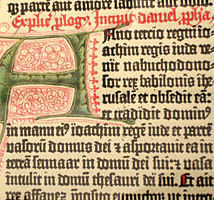 parẽ aut amore labunt aut odio
Explic̃ plog⁹. incipit daniel. pph̃a.
Anno tercio regni io
achim regis iuda ve
nit nabuchodono
sor rex babilonis ihe
rusalē et obsedit eā:
et tradidit domin⁹
in manu ei⁹ ioachim regē iude et partē
vasorū domus dei: et asportauit ea in
terrā sennaar in domū dei sui: et vasa
intulit in domū thesauri dei sui. Et ait
rex asfanez